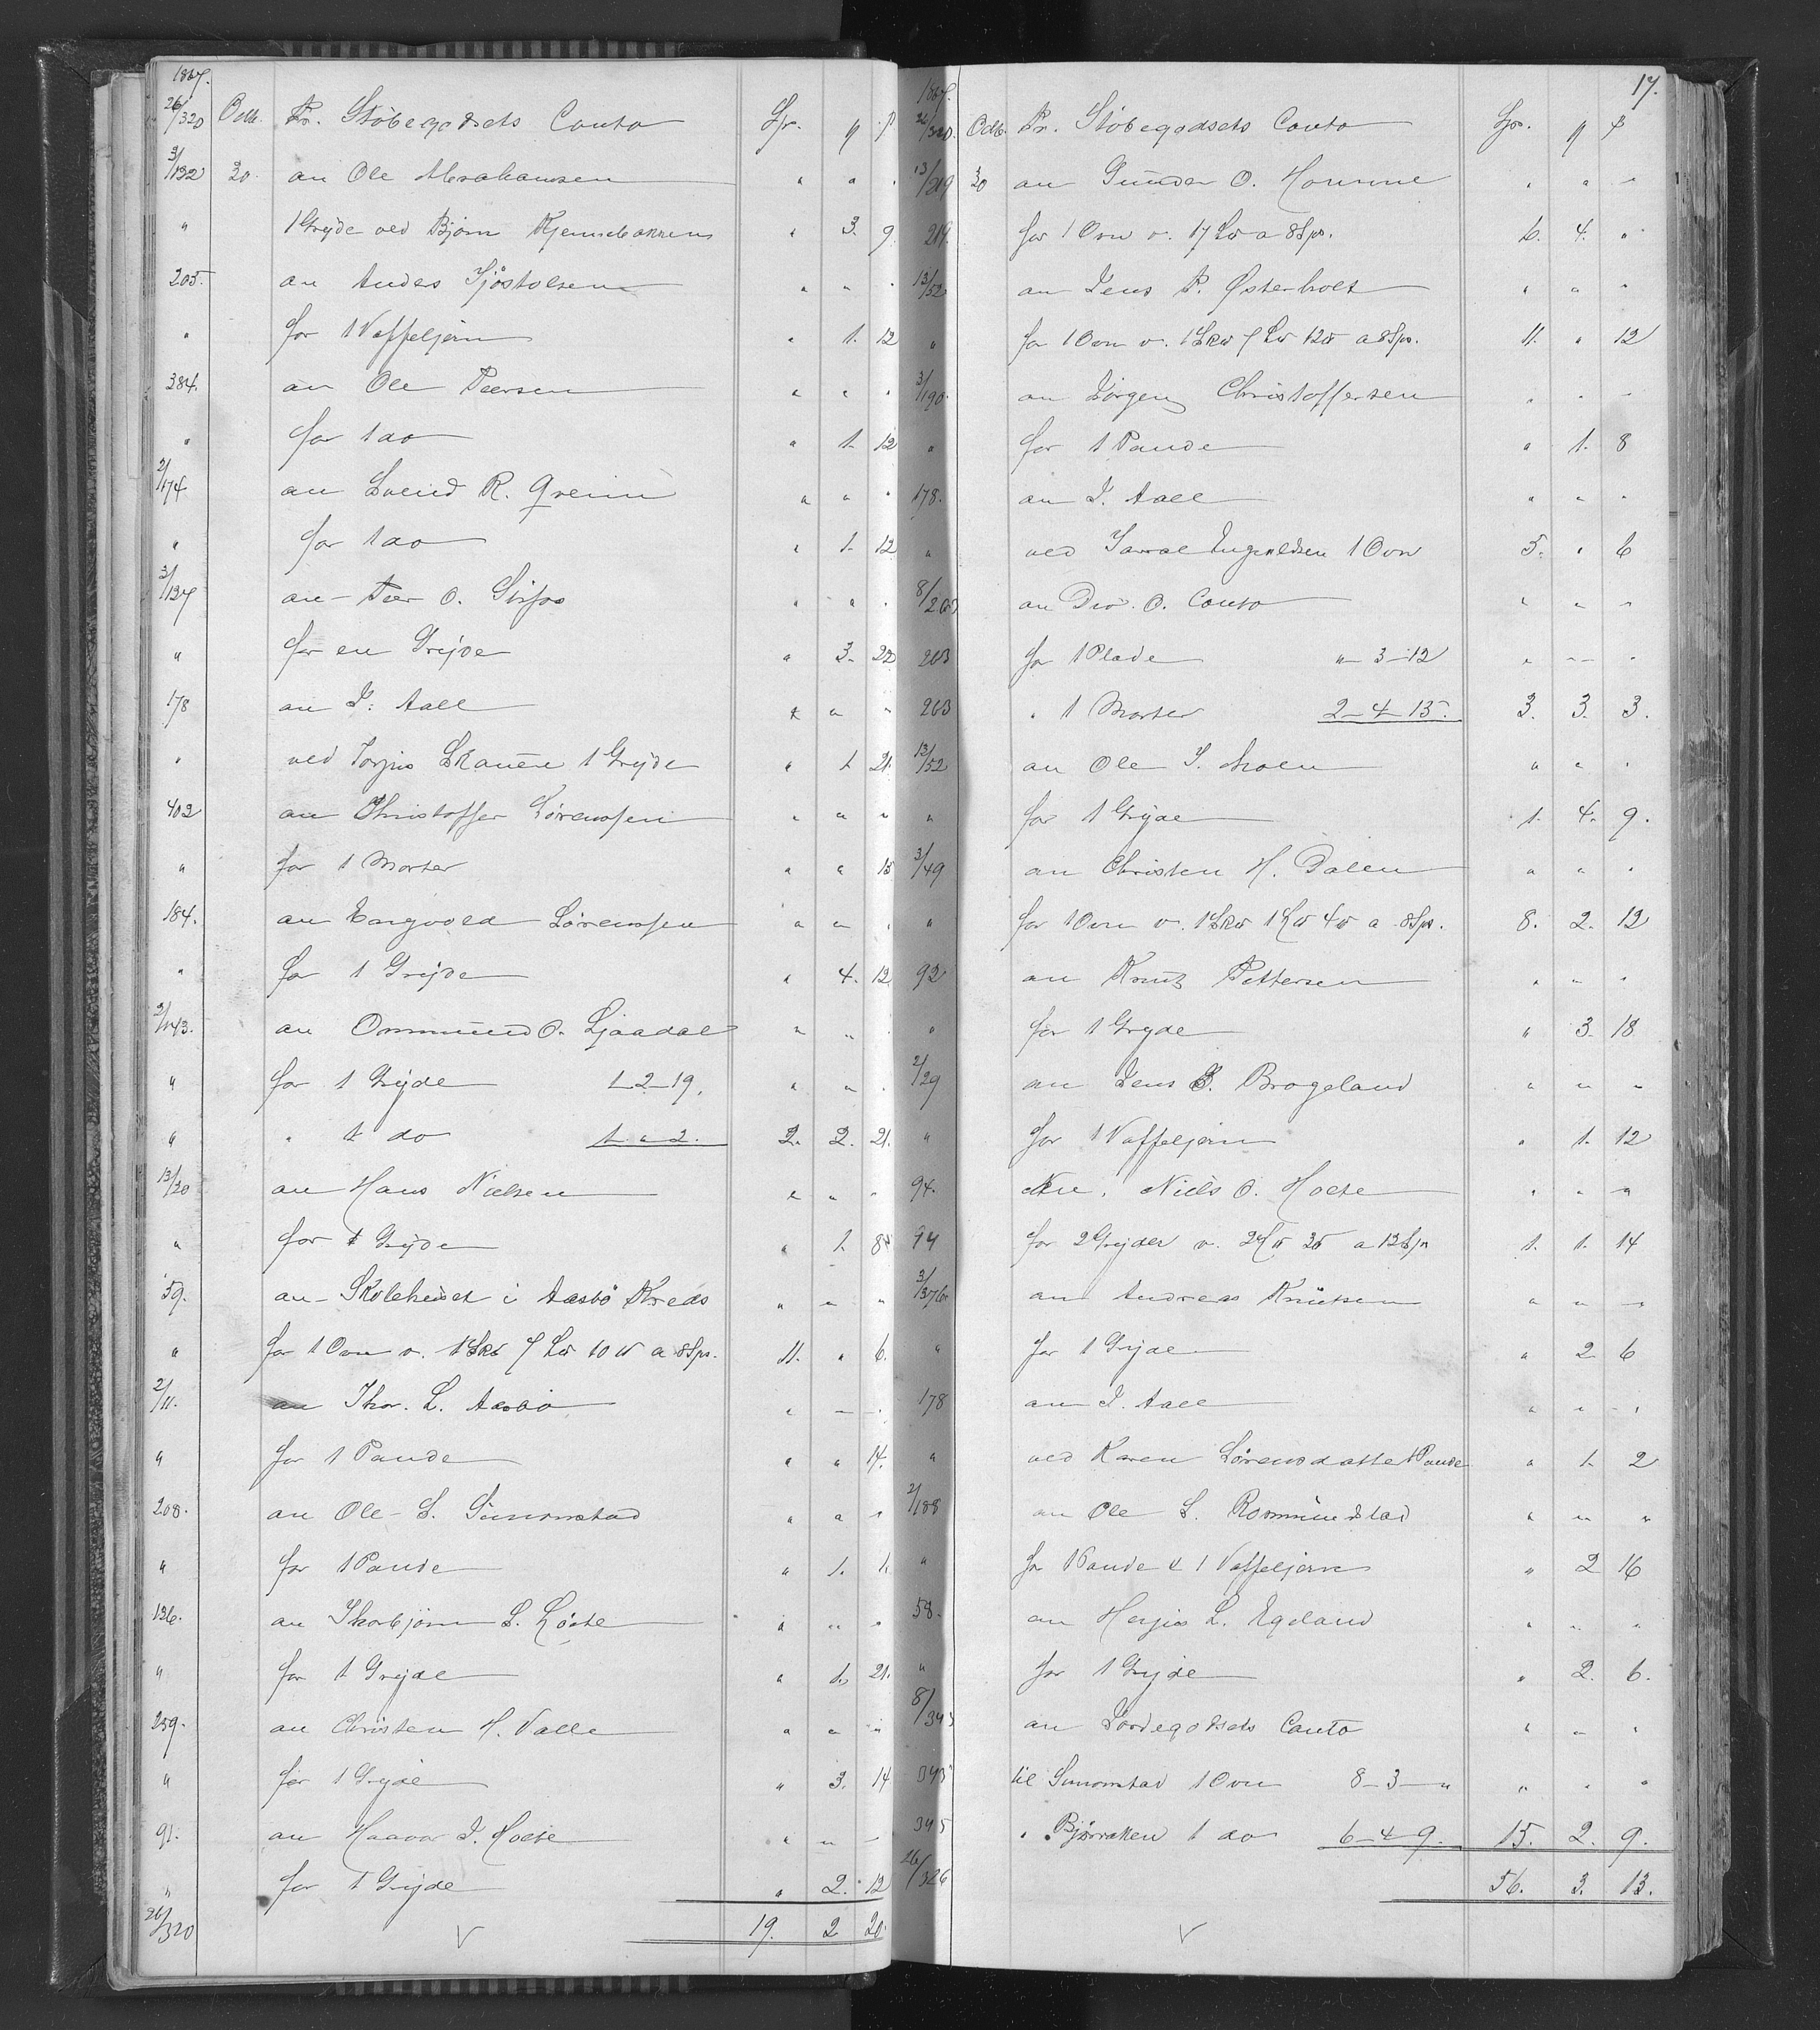 1867.
26/320 Octb. Pr. Støbegodsets Conto Spr. y β
3/132 30. an Ole Abrahamsen " " "
" 1 Gryde ved Bjørn " 3. 9
205. an Andes Sjøstolsen " " "
" for 1 Vaffeljern " 1. 12
384. an Ole Peersen " " "
" for 1 do " 1. 12
2/174 an Svend R. Greini " " "
" for 1 do " 1. 12
3/137 an Peer O. " " "
" for en Gryde " 3. 22
178 an J. Aall " " "
" ved Torjus Skauen 1 Gryde " 1. 21.
402 an Christoffer Sørenssen " " "
" for 1 Morter " " 15
184. an Engvold Sørenssen " " "
" for 1 Gryde " 4. 12
2/143. an Ommund O. Ljaadal " " "
" for 1 Gryde 1-2-19. " " "
" " 1 do 1 " 2. 2. 2. 21.
13/30 an Hans Nielsen " " "
" for 1 Gryde " 1. 8
59. an Skolehuset i Aasbø Kreds " " "
" for 1 Ovn v. 1 Sk℔ 7 L℔ 10 ℔ a 8 Spr. 11. " 6.
2/11. an Thor. L. Aasbø " " "
" for 1 Pande " " 14.
208. an Ole S. Simonstad " " "
" for 1 Pande " 1. 1.
136. an Thorbjørn S. Løite " " "
" for 1 Gryde " 1. 21.
259. an Christen H. Valle " " "
" for 1 Gryde " 3. 14
91. an Haavor J. Holte " " "
" for 1 Gryde " 2. 12
26/320 19. 2 20
17.
1867.
26/320. Octb. Pr. Støbegodsets Conto Spr. y β
13/219 30 an Gunder O. Homme " " "
219. for 1 Ovn v. 17 L℔ a 8 Spr. 6. 4. "
13/52 an Jens P. Østerholt " " "
" for 1 Ovn v. 1 Sk℔ 7 L℔ 12 ℔ a 8 Spr. 11. " 12
3/190. an Jørgen Christoffersen " " "
" for 1 Pande " 1. 8
178. an J. Aall " " "
" ved Ingvaldsen 1 Ovn 5. " 6
8/263 an Div. O. Conto " " "
263 for 1 Plade " - 3 - 12 " " "
263 " 1 Morter 2-4-15. 3. 3. 3.
13/52 an Ole J. Moen " " "
" for 1 Gryde 1. 4. 9.
3/49 an Christen H. Dalen " " "
" for 1 Ovn v. 1 Sk℔ 1 L℔ 4 ℔ a 8 Spr. 8. 2. 12
92 an Knut Pettersen " " "
" for 1 Gryde " 3. 18
2/29 an Jens S. Brogeland " " "
" for 1 Vaffeljern " 1. 12
94. an Niels O. Holte " " "
94 for 2 Gryder v. 2 L℔ 3 ℔ a 12 Spr 1. 1. 14
3/376. an Andreas Knutsen " " "
" for 1 Gryde " 2 6
178 an J. Aall " " "
" ved Karen Sørensdatter 1 Pande " 1. 2
2/188 an Ole S. Rommundstad " " "
" for 1 Pande & 1 Vaffeljern " 2 16
58. an Herjus L. Egeland " " "
" for 1 Gryde " 2. 6.
8/345 an Jordegodsets Conto " " "
345 til Simonstad 1 Ovn 8-3-" " " "
345 " Bjørraken 1 do 6-4-9. 15. 2. 9.
26/326 56. 3. 13.